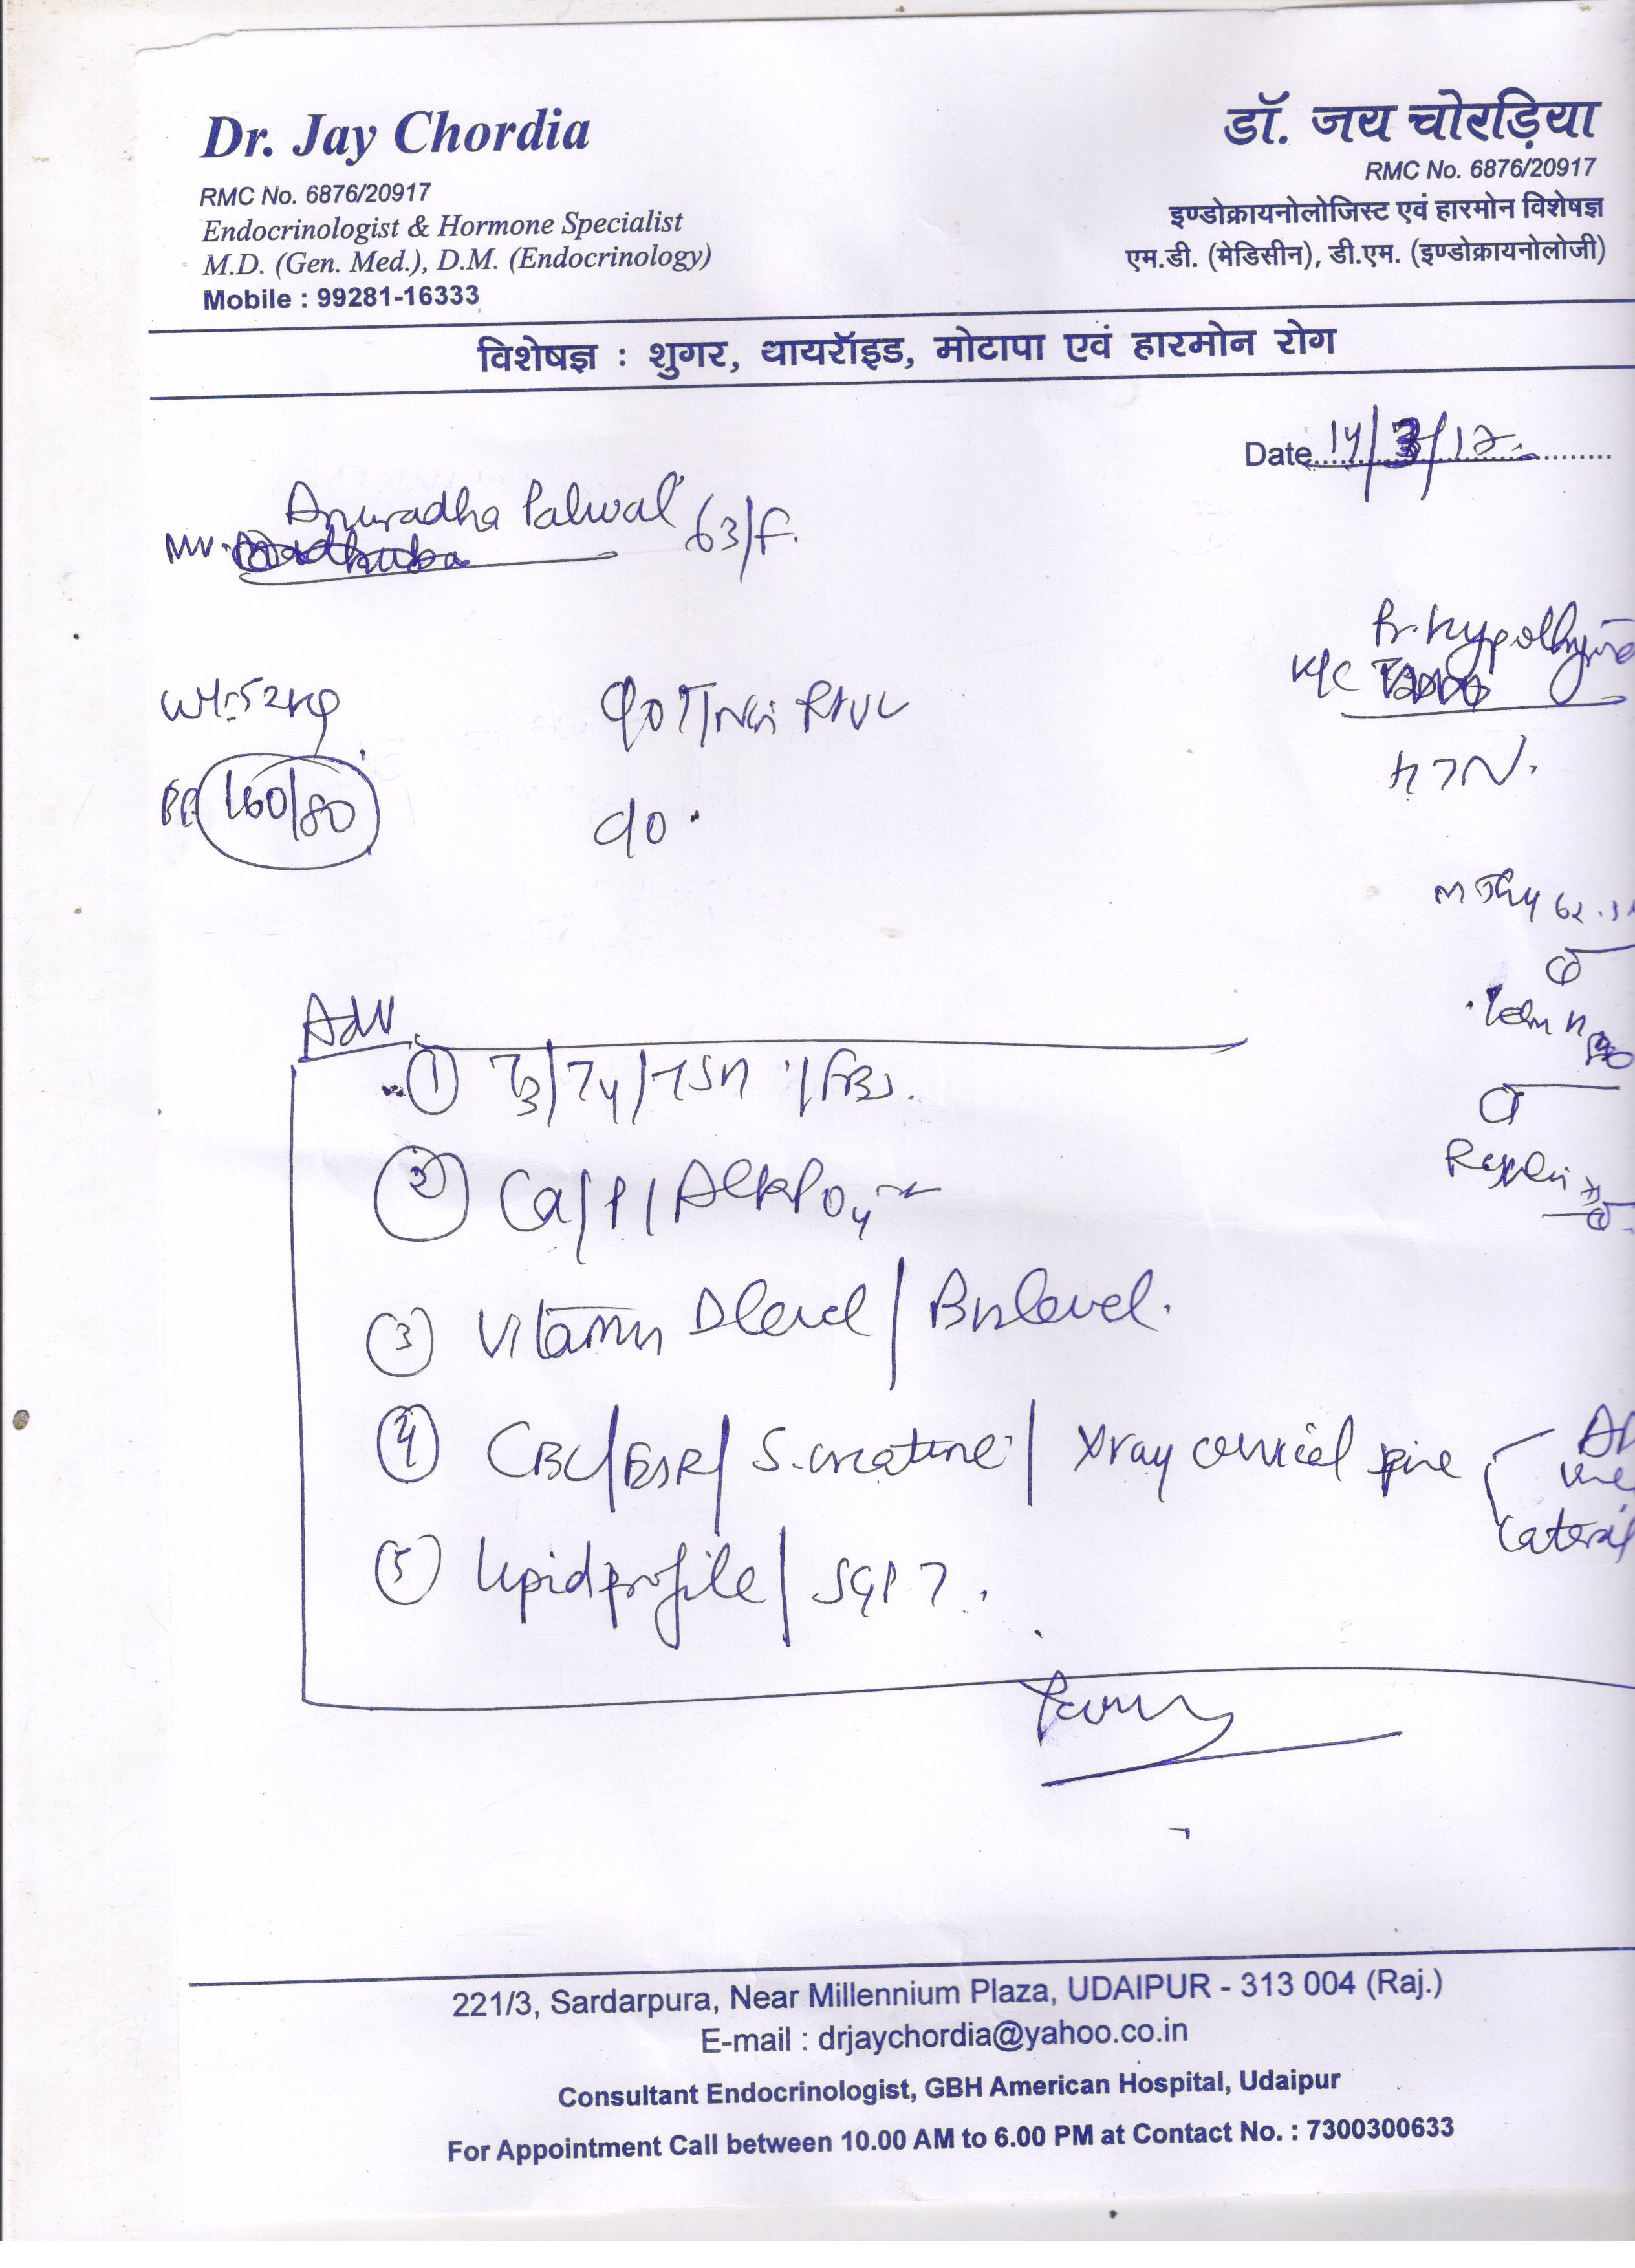 Dr. Jay Chordia
RMC No. 6876/20917
Endocrinologist & Hormone Specialist
M.D. (Gen. Med.), D.M. (Endocrinology)
Mobile : 99281-16333
डॉ. जय चोरड़िया
RMC No. 6876/20917
इण्डोक्रायनोलोजिस्ट एवं हारमोन विशेषज्ञ
एम.डी. (मेडिसीन), डी.एम. (इण्डोक्रायनोलोजी)
विशेषज्ञ : शुगर, थायरॉइड, मोटापा एवं हारमोन रोग
Date 14/3/17
Anuradha Palwal 63/F.
K/C
Wt: 52kg
HTN.
BP: 160/80
Adv
① T3/T4/TSH / FBS.
② Ca/P/AlkPO4
③ Vitamin D level / B12 level.
④ CBC/ESR/ S. creatine / Xray cervical spine
Lateral
⑤ Lipid profile / SGPT.
221/3, Sardarpura, Near Millennium Plaza, UDAIPUR - 313 004 (Raj.)
E-mail : drjaychordia@yahoo.co.in
Consultant Endocrinologist, GBH American Hospital, Udaipur
For Appointment Call between 10.00 AM to 6.00 PM at Contact No. : 7300300633